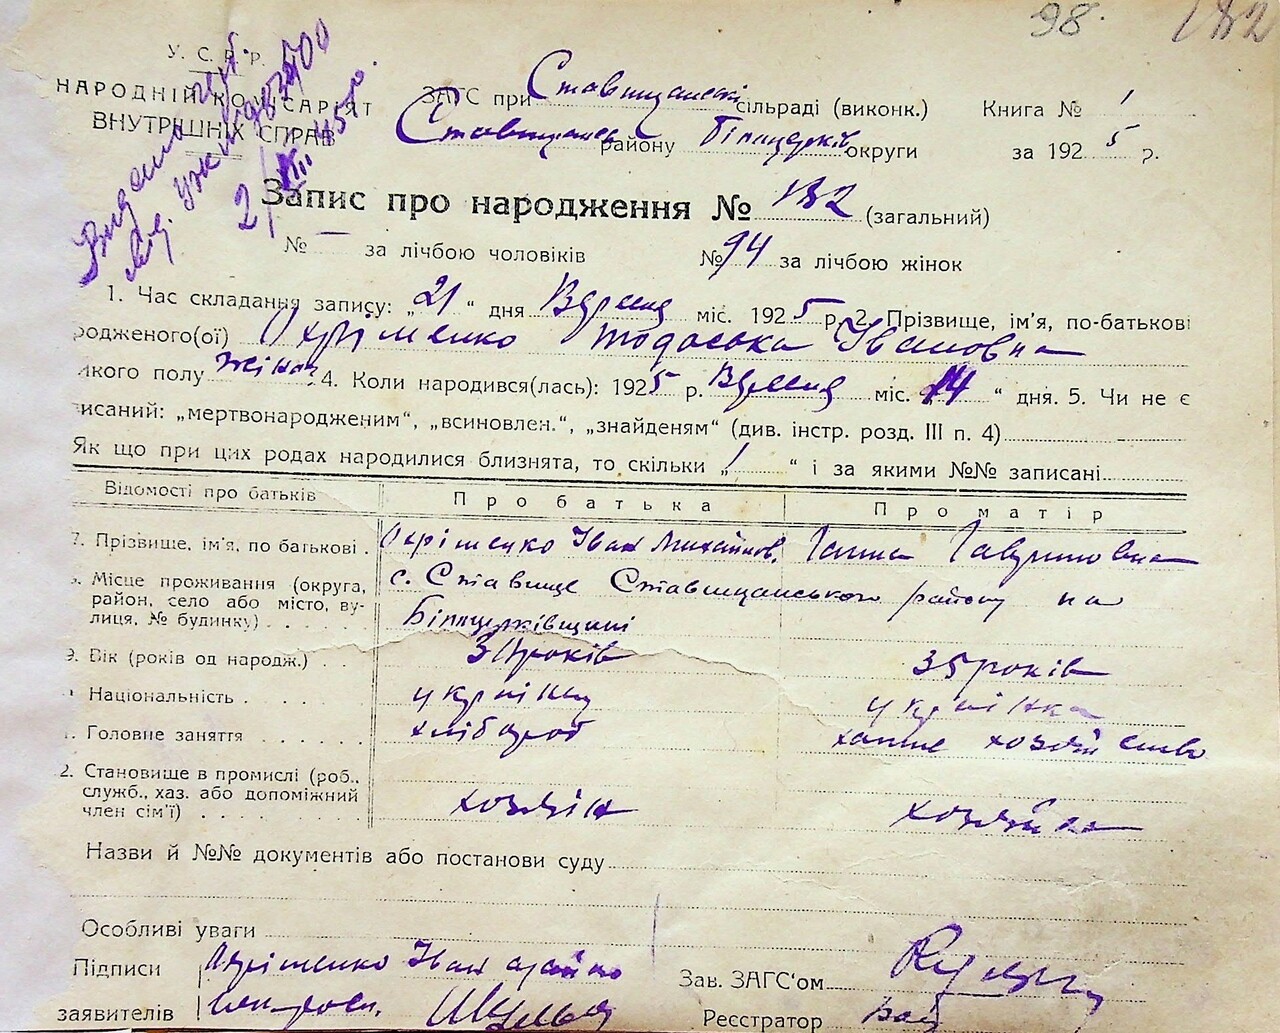 98.
У. С. Р. Р.
НАРОДНІЙ КОМІСАРІЯТ
ВНУТРІШНІХ СПРАВ
ЗАГС при Ставищанські сільраді (виконк.) Книга № 1
Ставищанськ району Білоцерків округи за 1925 р.
Запис про народження № 182 (загальний)
№ — за лічбою чоловіків № 94 за лічбою жінок
1. Час складання запису: „21“ дня Вересня міс. 1925 р. 2. Прізвище, ім'я, по-батькові
родженого(ої) Охріменко Тодоська Івановна
якого полу жіноч. 4. Коли народився(лась): 1925 р. Вересня міс. 14 “ дня. 5. Чи не є
писаний: „мертвонародженим“, „всиновлен.“, „знайденям“ (див. інстр. розд. III п. 4)
Як що при цих родах народилися близнята, то скільки „ 1 “ і за якими №№ записані
Відомості про батьків Про батька Про матір
7. Прізвище, ім'я, по батькові . Охріменко Іван Михайлов. Ганна Гаврилівна
Місце проживання (округа, район, село або місто, вулиця, № будинку) с. Ставище Ставищанського району на Білоцерківщині
9. Вік (років од народж.) років 35 років
Національність українец українка
Головне заняття хлібороб хатне хозяйство
2. Становище в промислі (роб., служб., хаз. або допоміжний член сім'ї) хозяїн хозяйка
Назви й №№ документів або постанови суду
Особливі уваги
Підписи Охріменко Іван
заявителів
Зав. ЗАГС'ом
Реєстратор